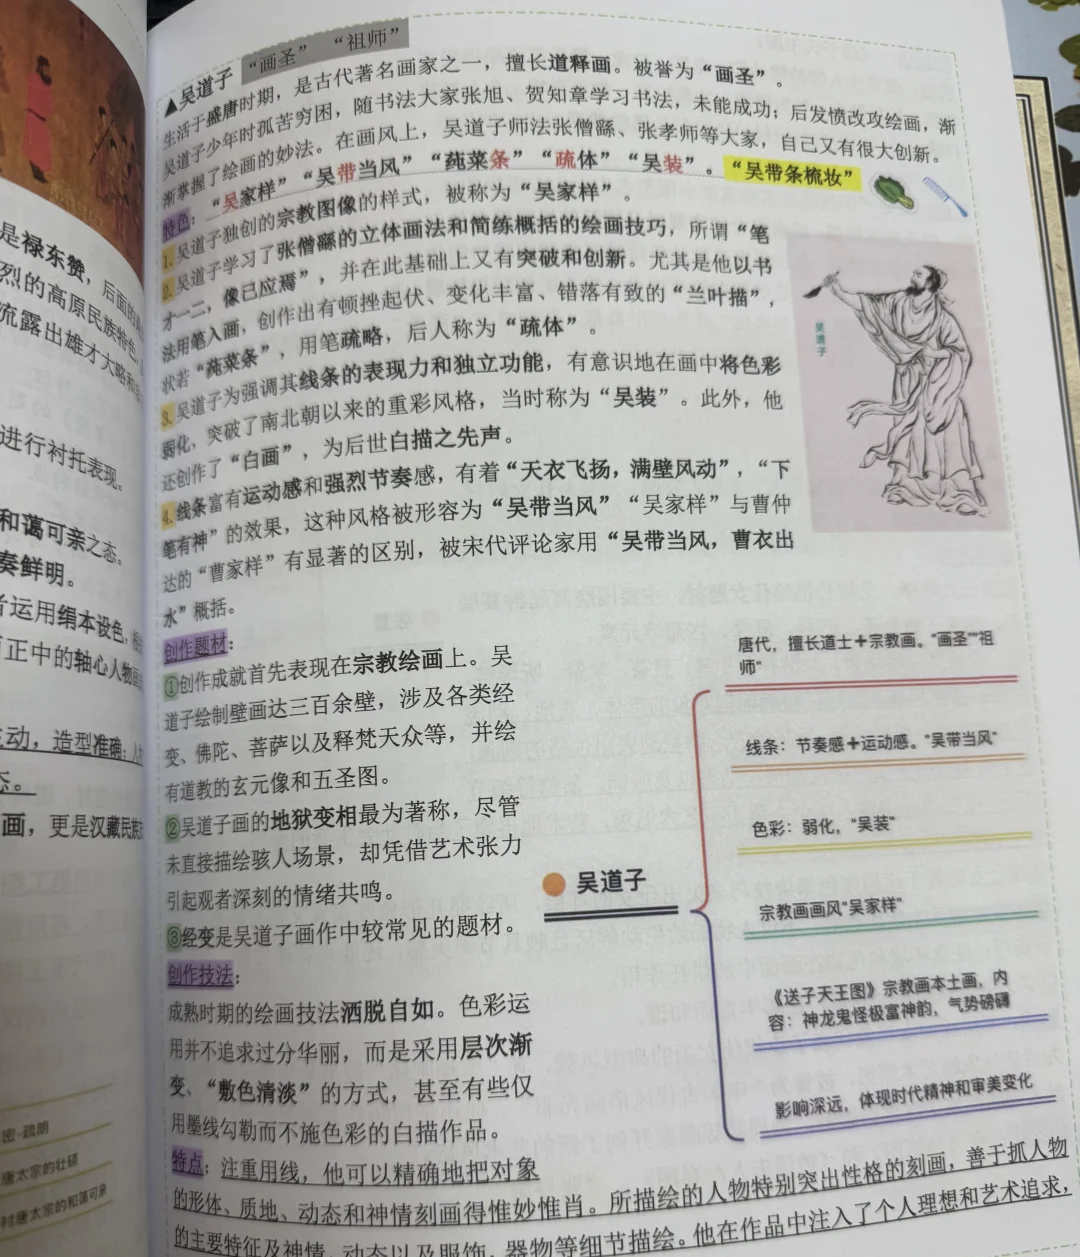 ▲吴道子 “画圣” “祖师”
生活于盛唐时期，是古代著名画家之一，擅长道释画。被誉为“画圣”。
吴道子少年时孤苦穷困，随书法大家张旭、贺知章学习书法，未能成功；后发愤改攻绘画，渐
渐掌握了绘画的妙法。在画风上，吴道子师法张僧繇、张孝师等大家，自己又有很大创新。
特色：“吴家样”“吴带当风”“莼菜条”“疏体”“吴装”。“吴带条梳妆”
1.吴道子独创的宗教图像的样式，被称为“吴家样”。
2.吴道子学习了张僧繇的立体画法和简练概括的绘画技巧，所谓“笔
才一二，像已应焉”，并在此基础上又有突破和创新。尤其是他以书
法用笔入画，创作出有顿挫起伏、变化丰富、错落有致的“兰叶描”，
状若“莼菜条”，用笔疏略，后人称为“疏体”。
3.吴道子为强调其线条的表现力和独立功能，有意识地在画中将色彩
弱化，突破了南北朝以来的重彩风格，当时称为“吴装”。此外，他
还创作了“白画”，为后世白描之先声。
4.线条富有运动感和强烈节奏感，有着“天衣飞扬，满壁风动”，“下
笔有神”的效果，这种风格被形容为“吴带当风”“吴家样”与曹仲
达的“曹家样”有显著的区别，被宋代评论家用“吴带当风，曹衣出
水”概括。
吴道子
创作题材：
①创作成就首先表现在宗教绘画上。吴
道子绘制壁画达三百余壁，涉及各类经
变、佛陀、菩萨以及释梵天众等，并绘
有道教的玄元像和五圣图。
②吴道子画的地狱变相最为著称，尽管
未直接描绘骇人场景，却凭借艺术张力
引起观者深刻的情绪共鸣。
③经变是吴道子画作中较常见的题材。
创作技法：
成熟时期的绘画技法洒脱自如。色彩运
用并不追求过分华丽，而是采用层次渐
变、“敷色清淡”的方式，甚至有些仅
用墨线勾勒而不施色彩的白描作品。
特点：注重用线，他可以精确地把对象
的形体、质地、动态和神情刻画得惟妙惟肖。所描绘的人物特别突出性格的刻画，善于抓人物
的主要特征及神情、动态以及服饰、器物等细节描绘。他在作品中注入了个人理想和艺术追求，
吴道子
唐代，擅长道士＋宗教画。“画圣”“祖
师”
线条：节奏感＋运动感。“吴带当风”
色彩：弱化，“吴装”
宗教画画风“吴家样”
《送子天王图》宗教画本土画，内
容：神龙鬼怪极富神韵，气势磅礴
影响深远，体现时代精神和审美变化
是禄东赞，后面的
烈的高原民族特色
流露出雄才大略和
进行衬托表现。
和蔼可亲之态。
奏鲜明。
者运用绢本设色，
正中的轴心人物
生动，造型准确；
态。
画，更是汉藏民族
密-疏朗
唐太宗的壮硕
衬唐太宗的和蔼可亲